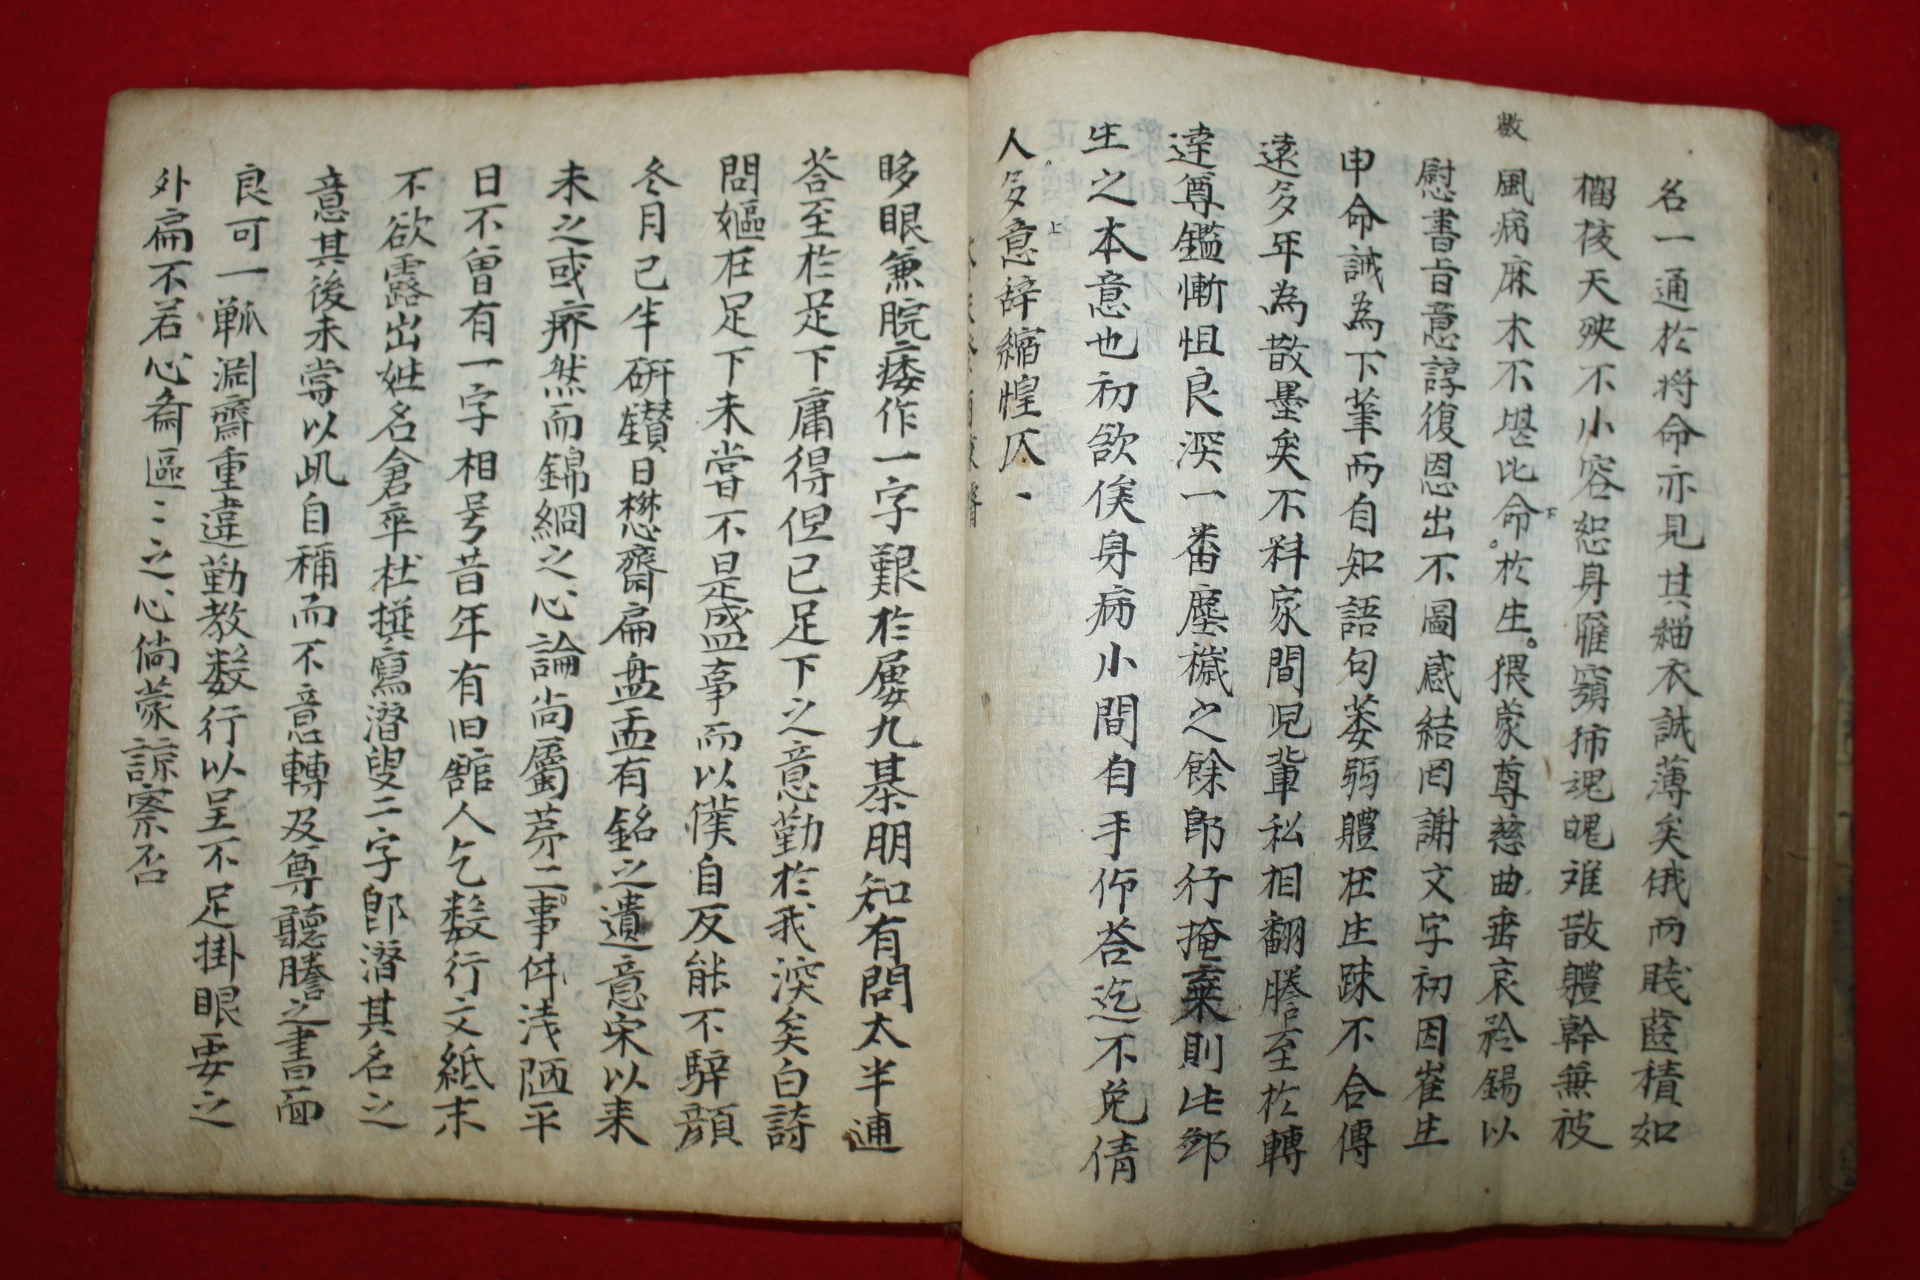 名一通於將命亦見其緇衣誠薄矣俄而賤蓰積如
樞核天殃不小容恕身罹窮沛魂魄难散軆幹無被
數
風病麻木不堪比命於生猥蒙尊慈曲垂哀矜錫以
下
慰書旨意諄復恩出不圖感結罔謝文字初因崔生
申命誠為下筆而自知語句萎弱軆㽵生踈不合傳
遠多年為散墨矣不料家間児輩私相翻謄至於轉
達尊鑑慚怛良深一番塵穢之餘即行掩棄則比鄙
生之本意也初欲俟身病小間自手作荅迄不免倩
上
人多意辞縮惶仄
眵眼無脘痿作一字艱於屢九棊朋知有問太半逋
荅至於足下庸得但已足下之意勤於我深矣白詩
問嫗在足下未嘗不是盛事而以僕自反能不騂顔
冬月己牛硏鑚日懋齋扁盘盂有銘之遺意宋以来
未之或廃然而錦絅之心論尚屬苐二事件淺陋平
日不曾有一字相号昔年有旧舘人乞數行文紙末
不欲露出姓名倉卒杜撰寫潛叟二字卽潛其名之
意其後未嘗以此自稱而不意轉及尊聽謄之書面
良可一騂洞齋重違勤教数行以呈不足掛眼要之
外扁不若心齋區〻之心倘蒙諒察否